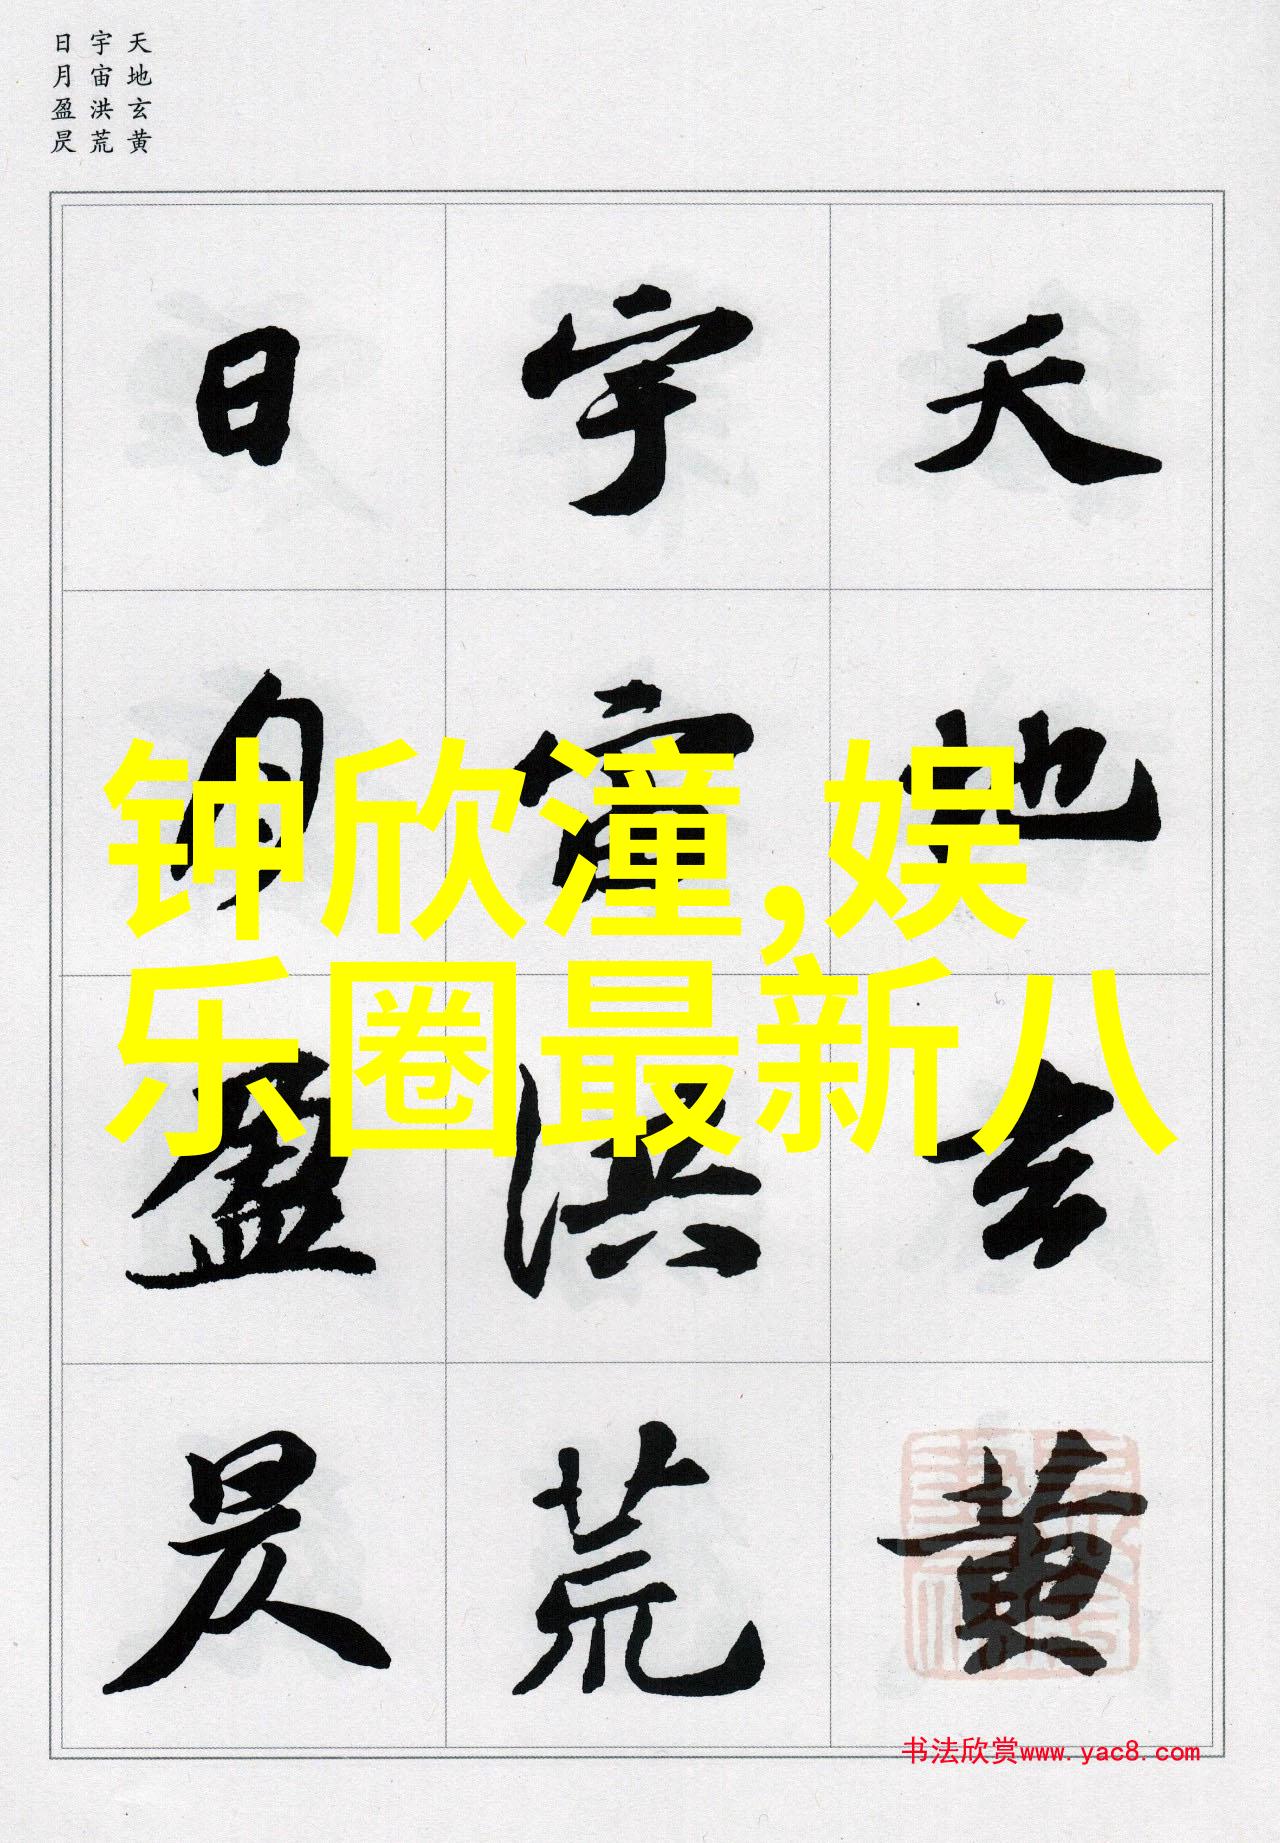 天地玄黄
宇宙洪荒
日月盈昃
天地玄黄
宇宙洪荒
日月盈昃
钟欣潼,娱
乐圈最新八
书法欣赏www.yac8.com